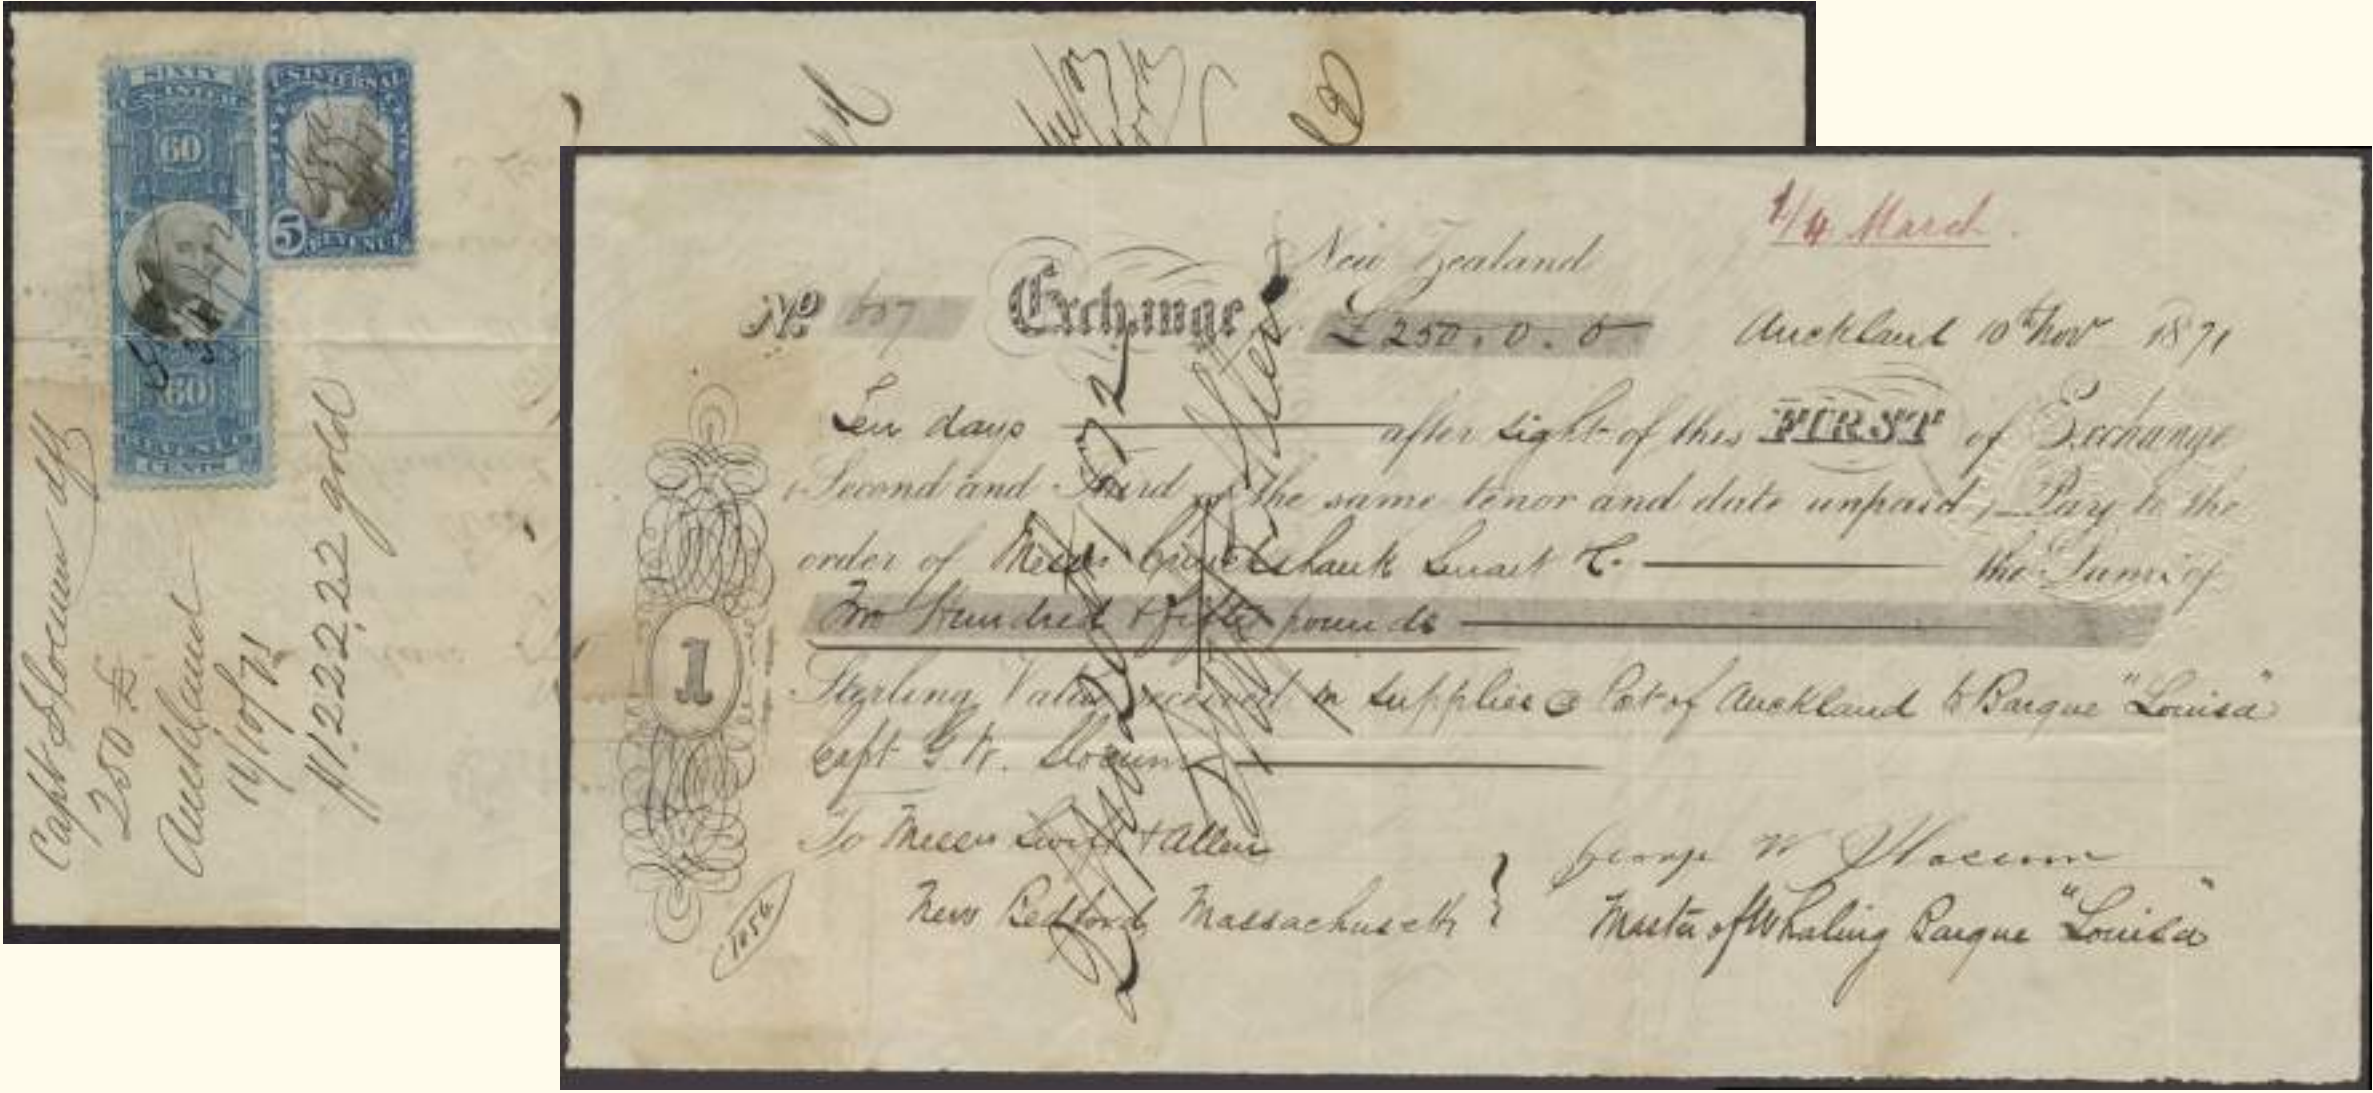 SIXTY
60
60
REVENUE
CENTS
U.S. INTERNAL
5
REVENUE
Capt Slocum dft
250 £
Auckland
16/10/71
$1222.22 gold
1/4 March.
New Zealand
No 657 Exchange £250.0.0 Auckland 10th Nov 1871
Ten days after sight of this FIRST of Exchange
Second and Third of the same tenor and date unpaid, Pay to the
order of Messrs Cruickshank Smart & Co. the Sum of
Two Hundred & fifty pounds
1
Sterling Value received in supplies @ Port of Auckland to Barque "Louisa"
Capt G W. Slocum
To Messrs Swift & Allen
New Bedford, Massachusetts
George W Slocum
Master of Whaling Barque "Louisa"
1056